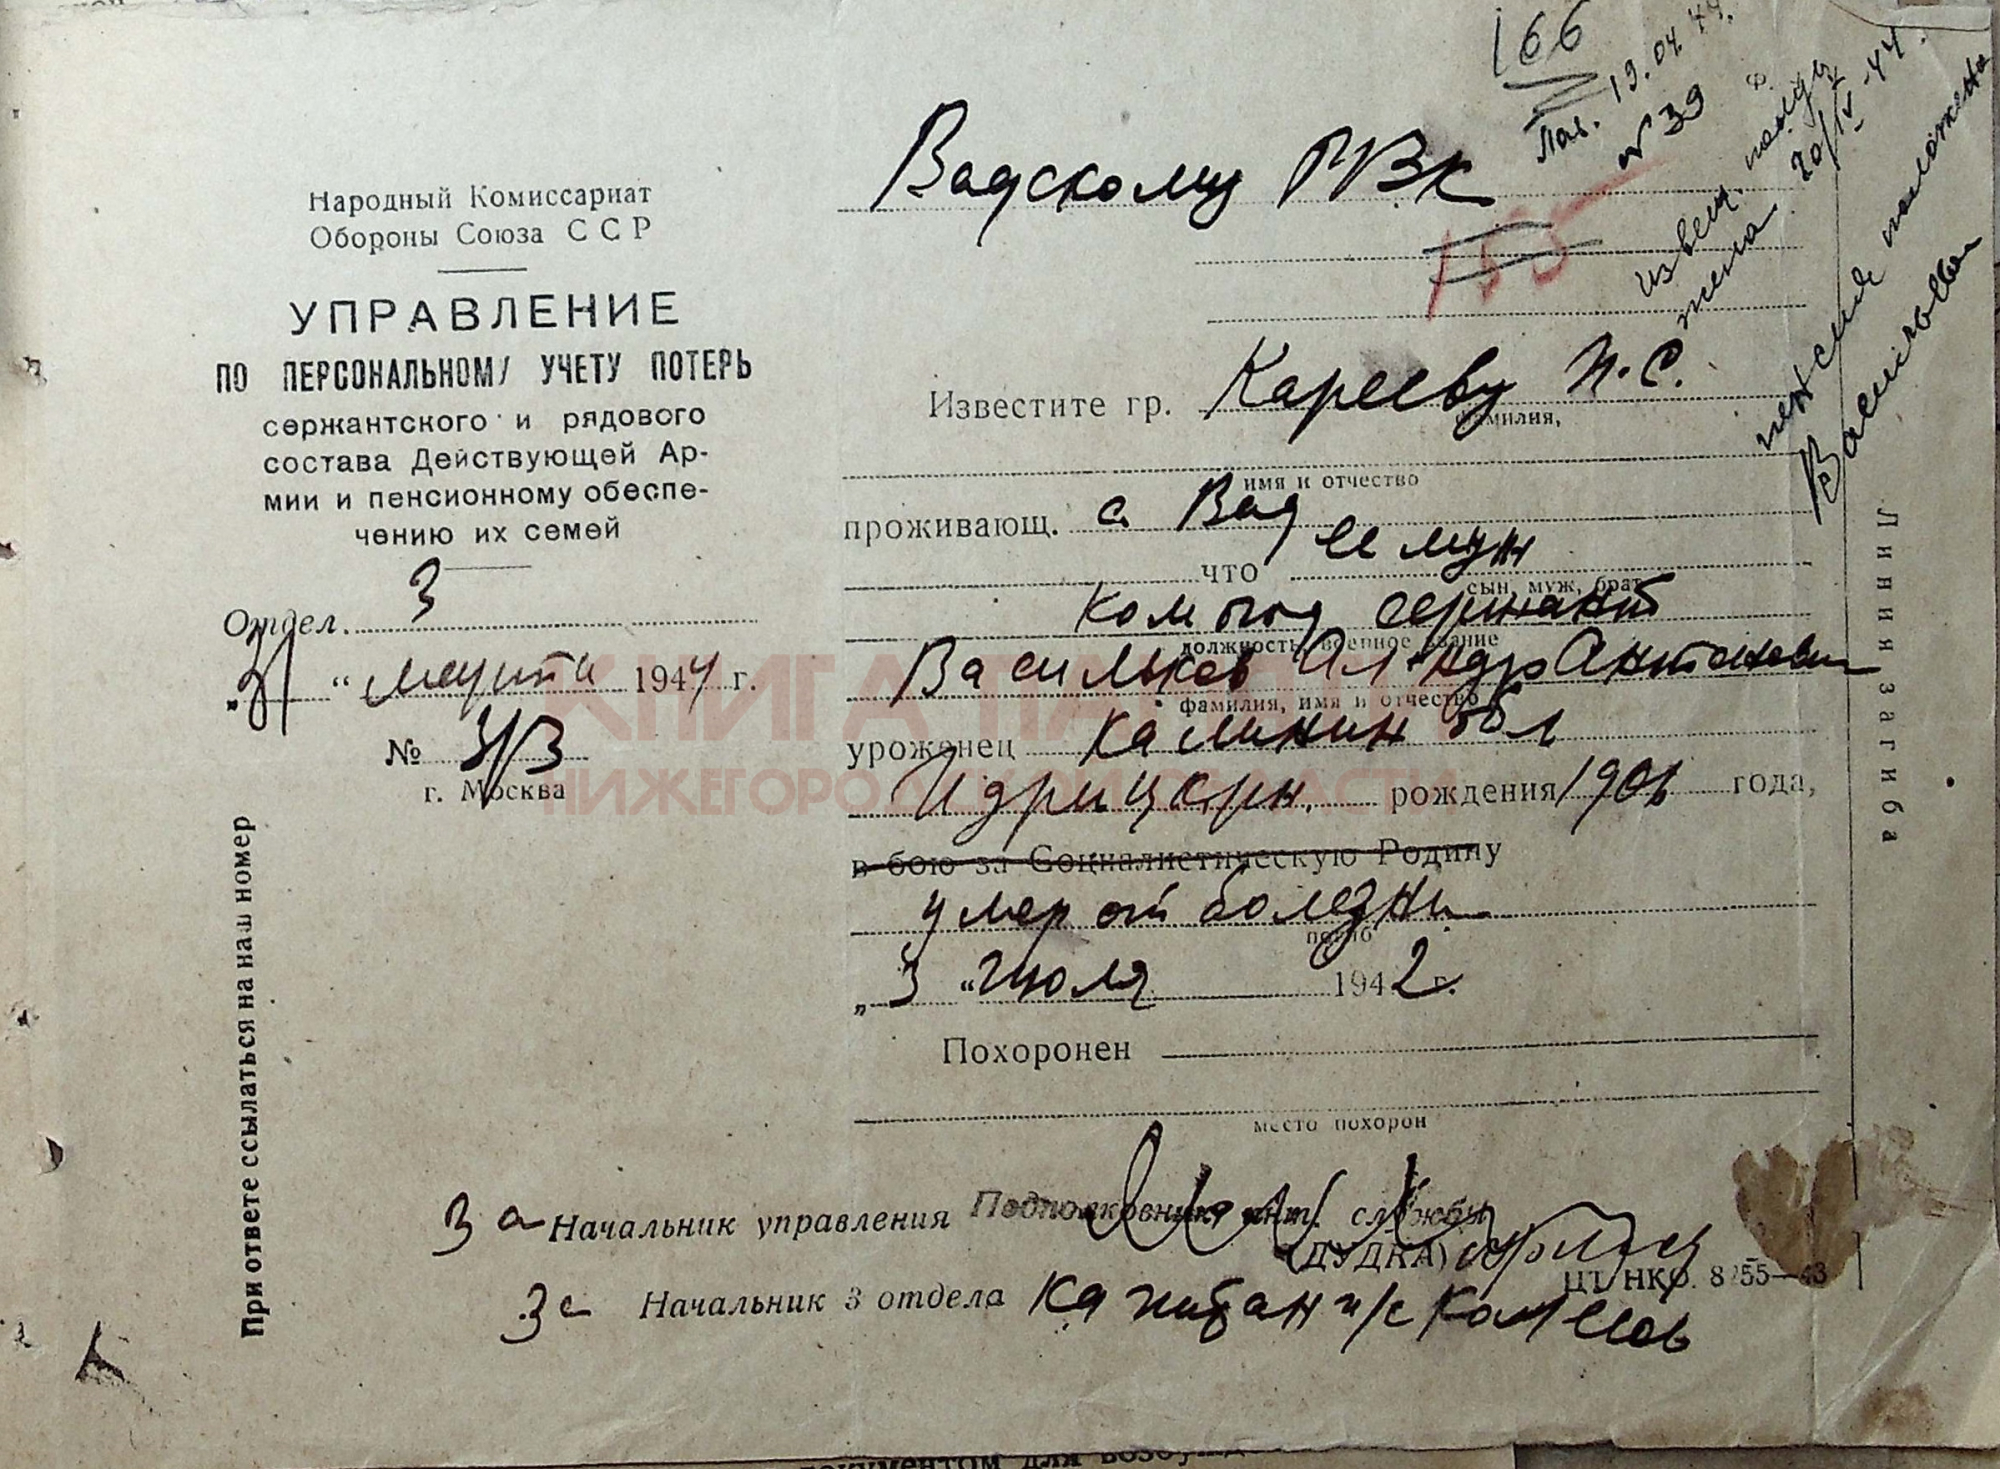 166
Пол. 19.04.44.
№ 39
155
Извещ. получ.
жена 20/IV-44.
пенсия положена
Васильева
Вадскому РВК
Народный Комиссариат
Обороны Союза ССР
УПРАВЛЕНИЕ
ПО ПЕРСОНАЛЬНОМУ УЧЕТУ ПОТЕРЬ
сержантского и рядового
состава Действующей Ар-
мии и пенсионному обеспе-
чению их семей
Отдел. 3
„31“ марта 1944 г.
№ 3/3
г. Москва
При ответе ссылаться на наш номер
Известите гр. Карееву П.С.
фамилия,
имя и отчество
проживающ. с. Вад
что ее муж
сын, муж, брат
ком отд сержант
должность, военное звание
Васильев Ал-кдр Антонович
фамилия, имя и отчество
уроженец Калинин обл
Идрицк рн, рождения 1906 года,
в бою за Социалистическую Родину
умер от болезни
погиб
„3“ июля 1942 г.
Похоронен
место похорон
За Начальник управления Подполковник инт. службы
(ДУДКА)
ЦТ. НКО. 8255—43
За Начальник 3 отдела Капитан и/с
Линия загиба
КНИГА ПАМЯТИ
НИЖЕГОРОДСКОЙ ОБЛАСТИ
документом для возбужд